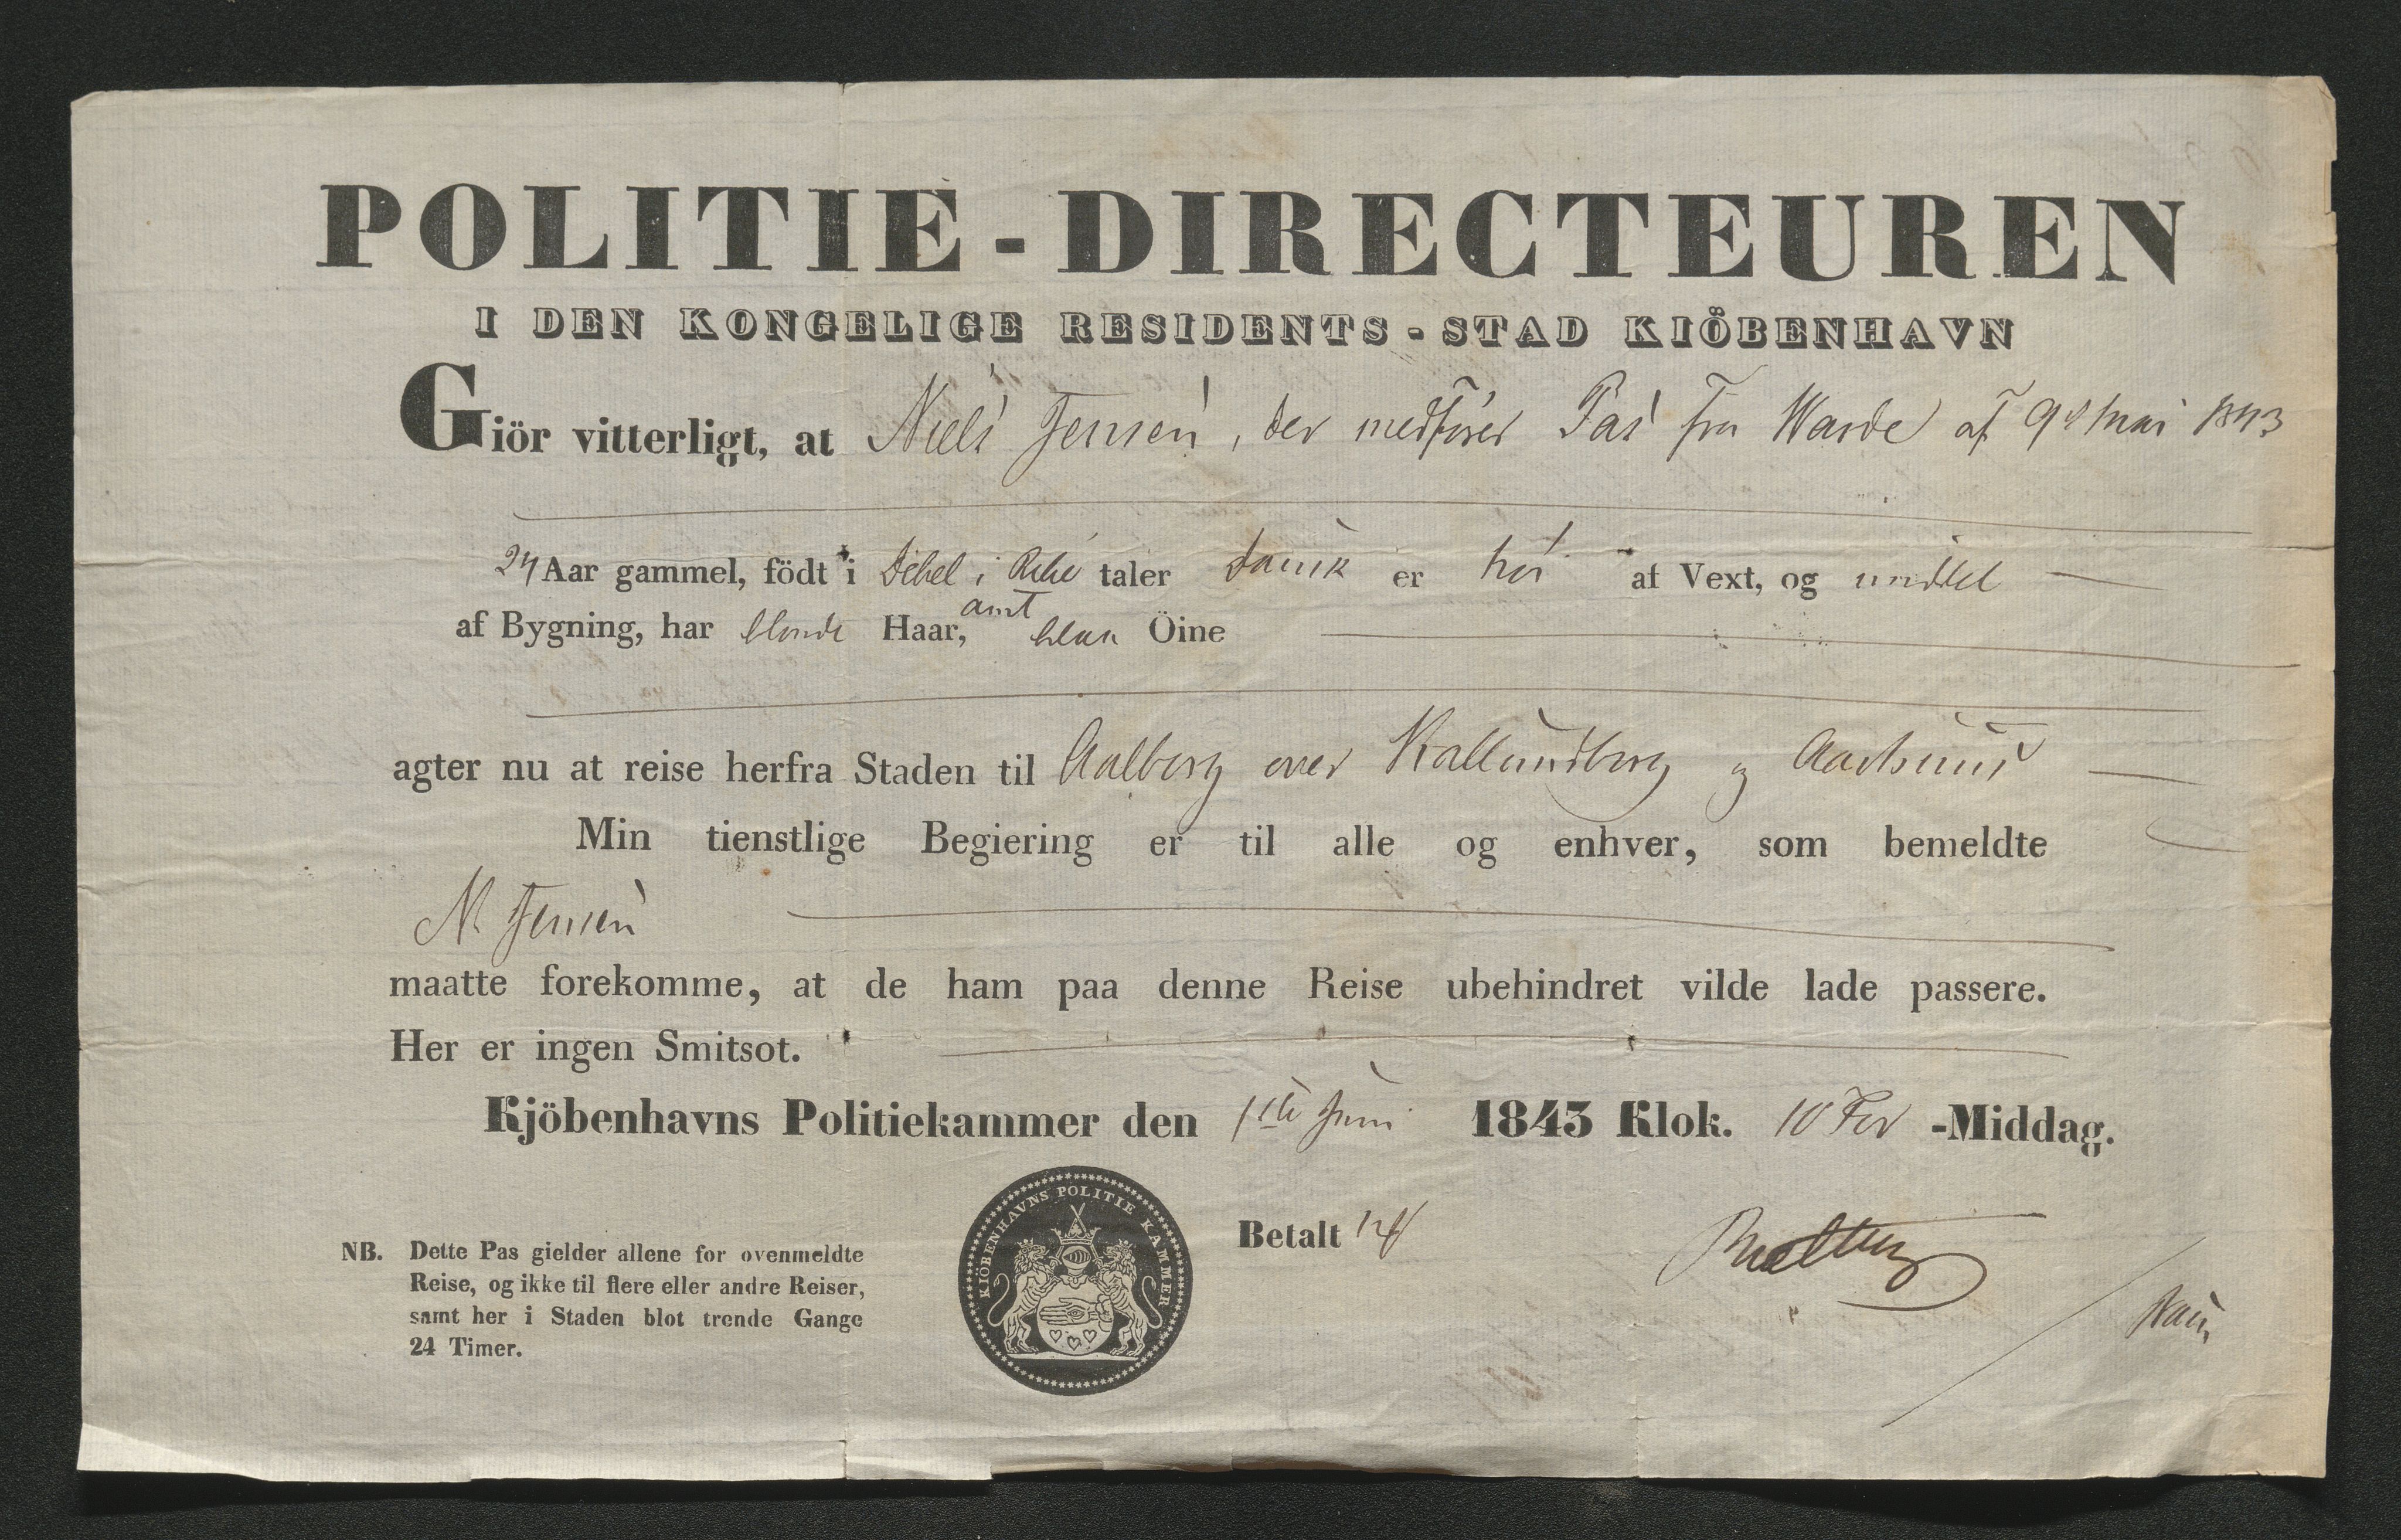 POLITIE-DIRECTEUREN
I DEN KONGELIGE RESIDENTS-STAD KIÖBENHAVN
Giör vitterligt, at Niels Jensen, der medfører Pas fra Warde af 9d Mai 1843
24 Aar gammel, födt i Debel i Ribe taler dansk er høi af Vext, og middel
amt
af Bygning, har blonde Haar, blaa Öine
agter nu at reise herfra Staden til Aalborg over Kallundborg og Aarhuus
Min tienstlige Begiering er til alle og enhver, som bemeldte
N. Jensen
maatte forekomme, at de ham paa denne Reise ubehindret vilde lade passere.
Her er ingen Smitsot.
Kjöbenhavns Politiekammer den 1ste Juni 1843 Klok. 10 For-Middag.
KIÖBENHAVNS POLITIE KAMMER
Betalt
NB. Dette Pas gielder allene for ovenmeldte
Reise, og ikke til flere eller andre Reiser,
samt her i Staden blot trende Gange
24 Timer.